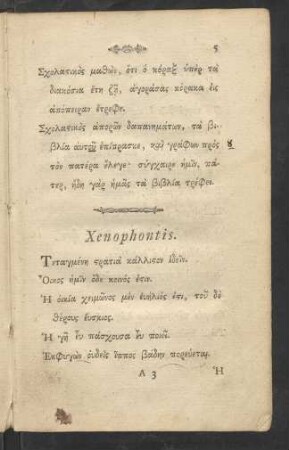 5
Σχολαστικὸς μαθὼν, ὅτι ὁ κόραξ ὑπὲρ τὰ
διακόσια ἔτη ζῇ, ἀγοράσας κόρακα εἰς
ἀπόπειραν ἔτρεφε.
Σχολαστικὸς ἀπορῶν δαπανημάτων, τὰ βι-
βλία αυτοῦ ἐπίπρασκε, καὶ γράφων πρὸς
τὸν πατέρα ἔλεγε· σύγχαιρε ἡμῖν, πά-
τερ, ἤδη γὰρ ἡμᾶς τὰ βιβλία τρέφει.
Xenophontis.
Τεταγμένη στρατιὰ κάλλιστον ἰδεῖν.
Ὁ οἶκος ἡμῖν ὅδε κοινός ἐστιν.
Ἡ οἰκία χειμῶνος μὲν εὐήλιός ἐστι, τοῦ δὲ
θέρους εὔσκιος.
Ἡ γῆ εὖ πάσχουσα εὖ ποιεῖ.
Ἐκφυγὼν οὐδεὶς ἵππος βάδην πορεύεται.
A 3
Ἡ